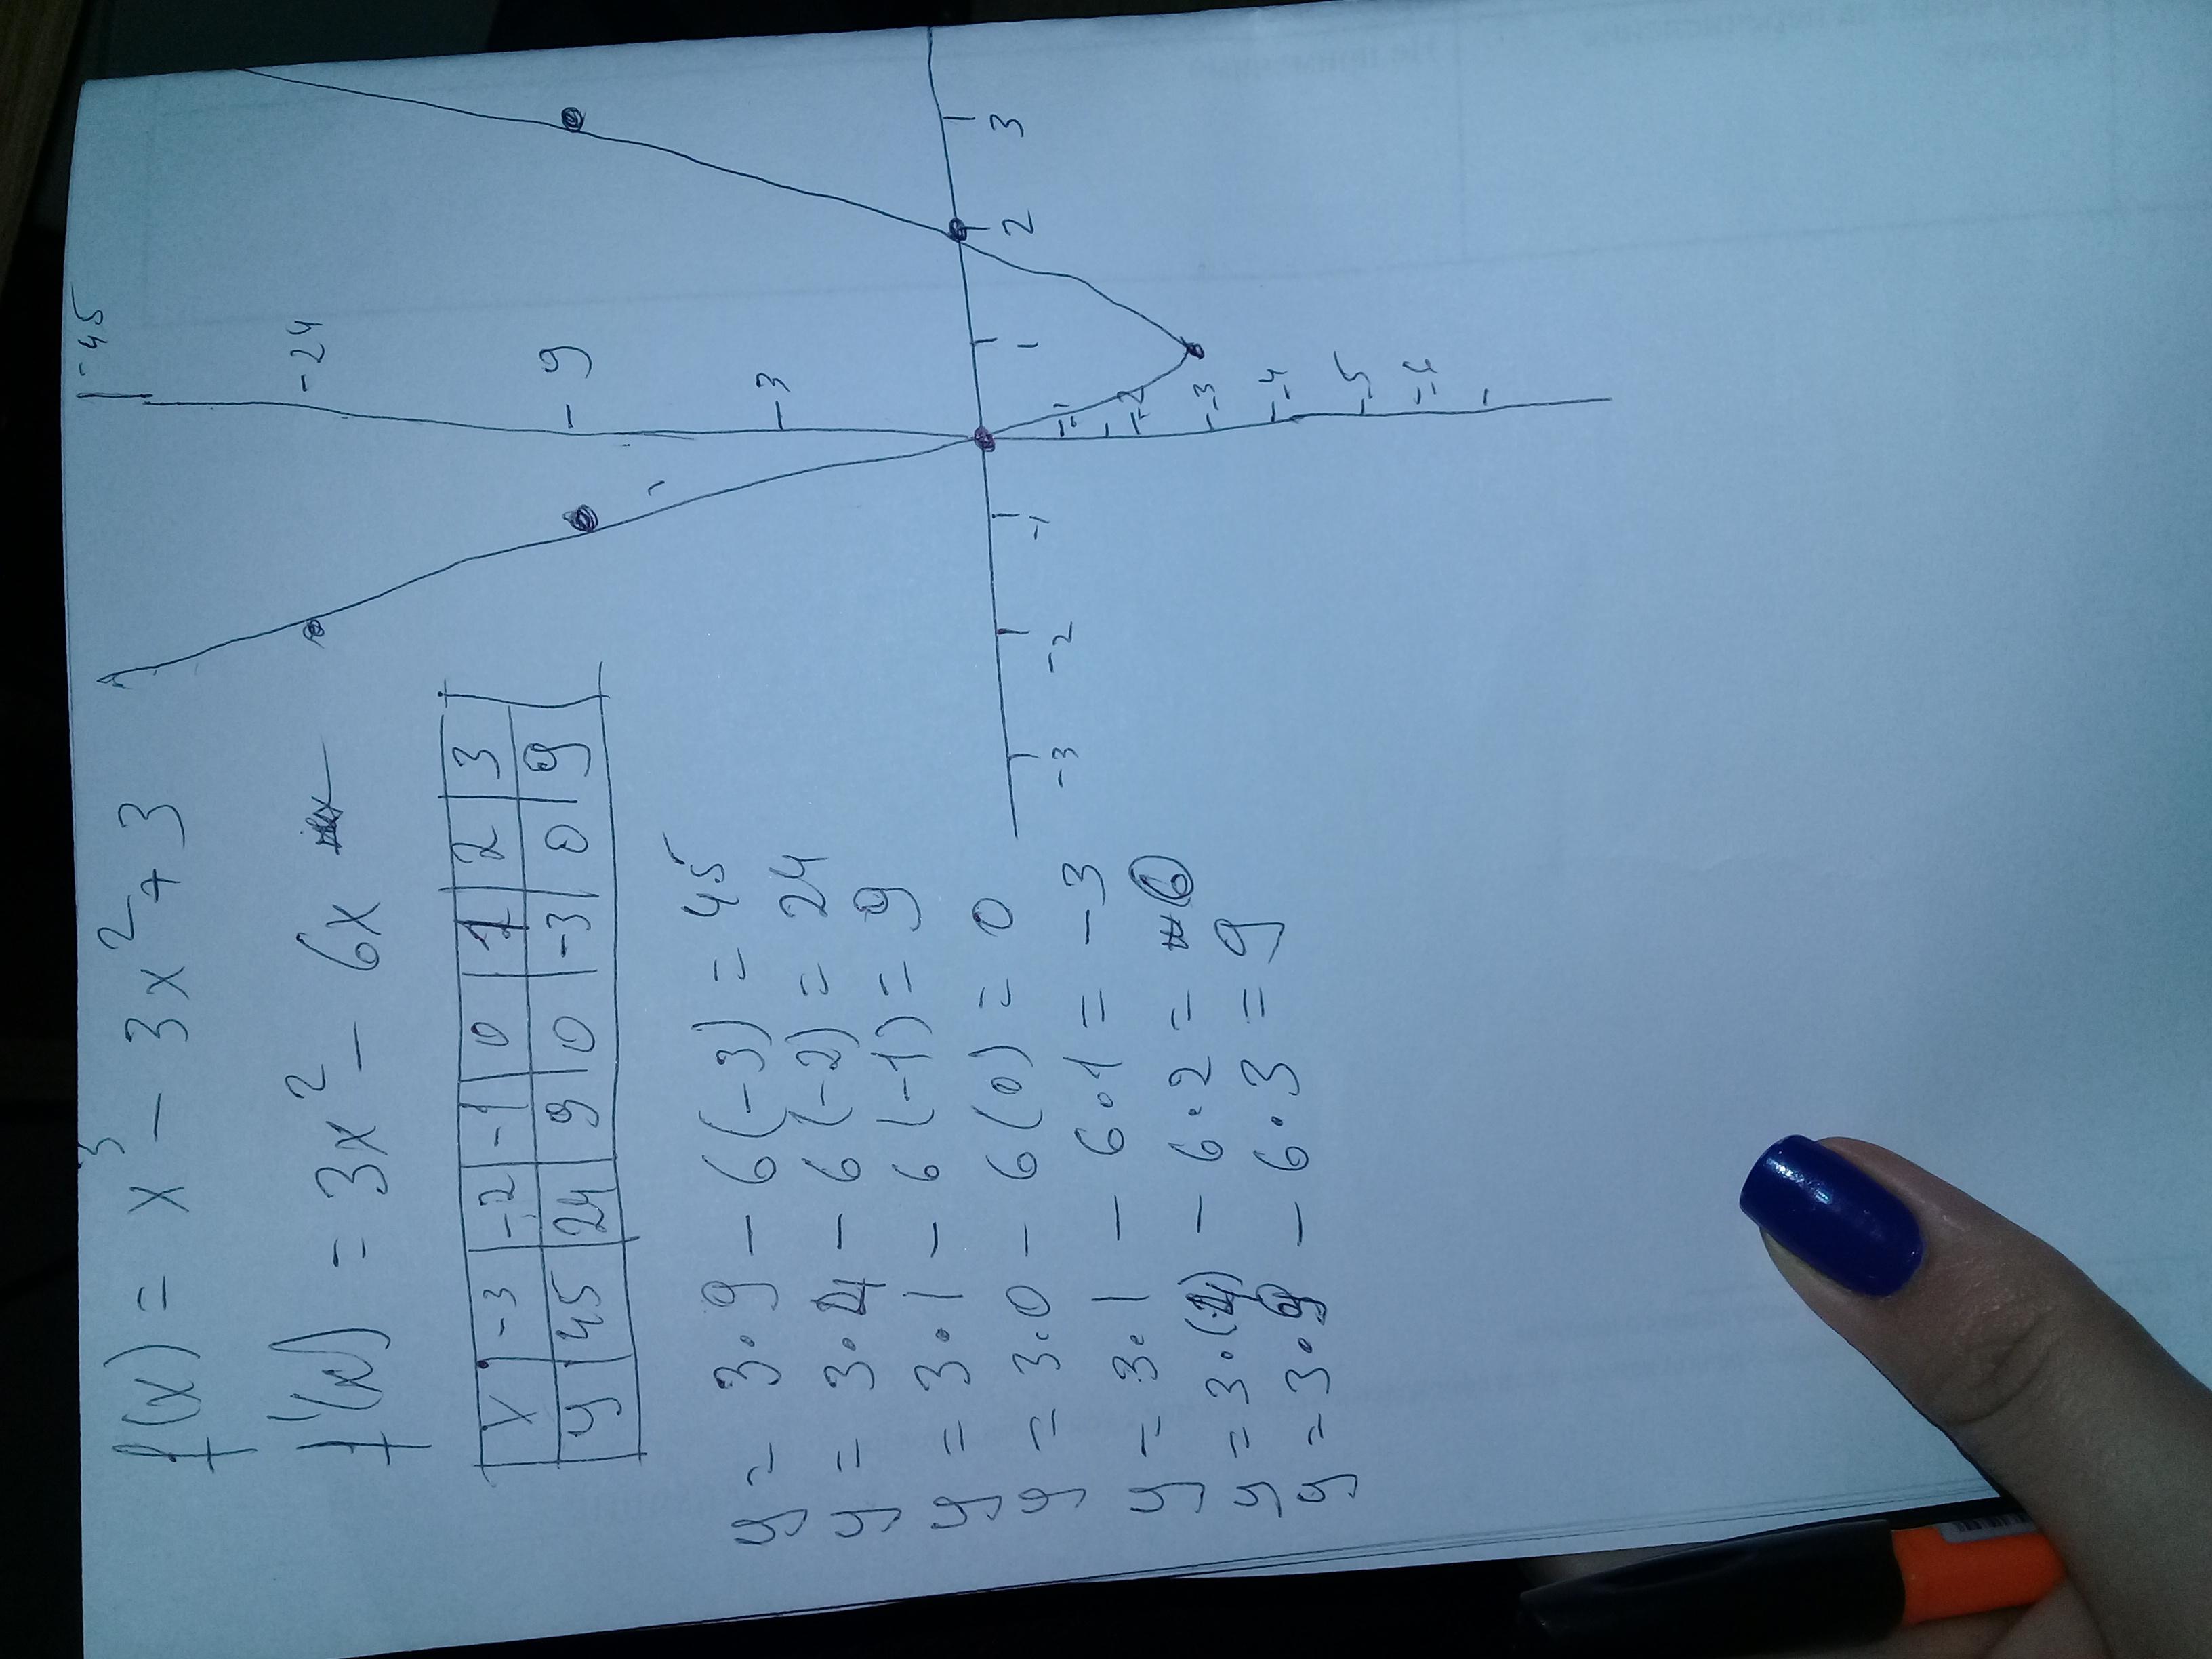 f(x) = x³ - 3x² + 3
f'(x) = 3x² - 6x
x | -3 | -2 | -1 | 0 | 1 | 2 | 3
y | 45 | 24 | 9 | 0 | -3 | 0 | 9
y = 3·9 - 6(-3) = 45
y = 3·4 - 6(-2) = 24
y = 3·1 - 6(-1) = 9
y = 3·0 - 6(0) = 0
y = 3·1 - 6·1 = -3
y = 3·(2) - 6·2 =
y = 3·9 - 6·3 = 9
-45
-24
9
-3
-3 -2 -1 1 2 3
-1
-2
-3
-4
5